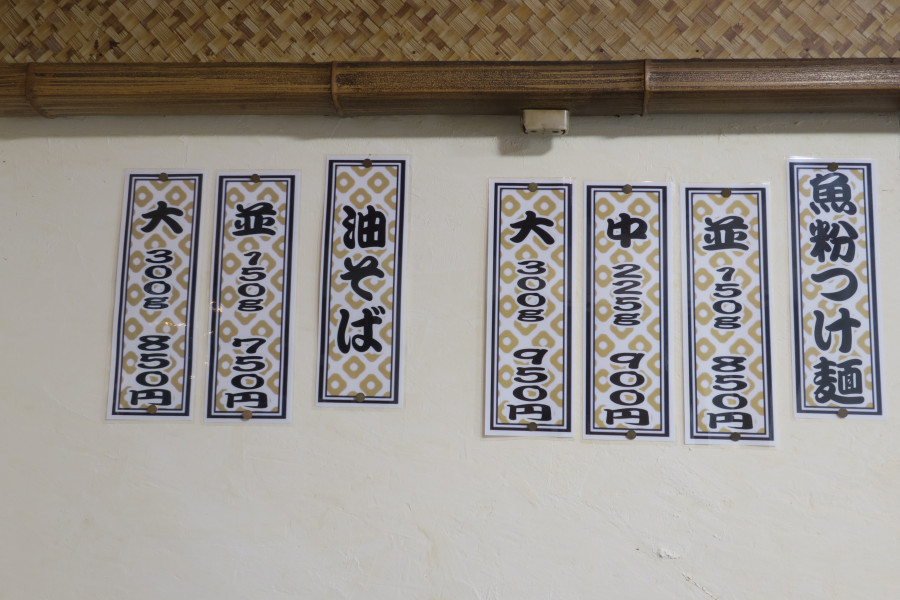 魚粉つけ麺
並 150g 850円
中 225g 900円
大 300g 950円
油そば
並 150g 750円
大 300g 850円